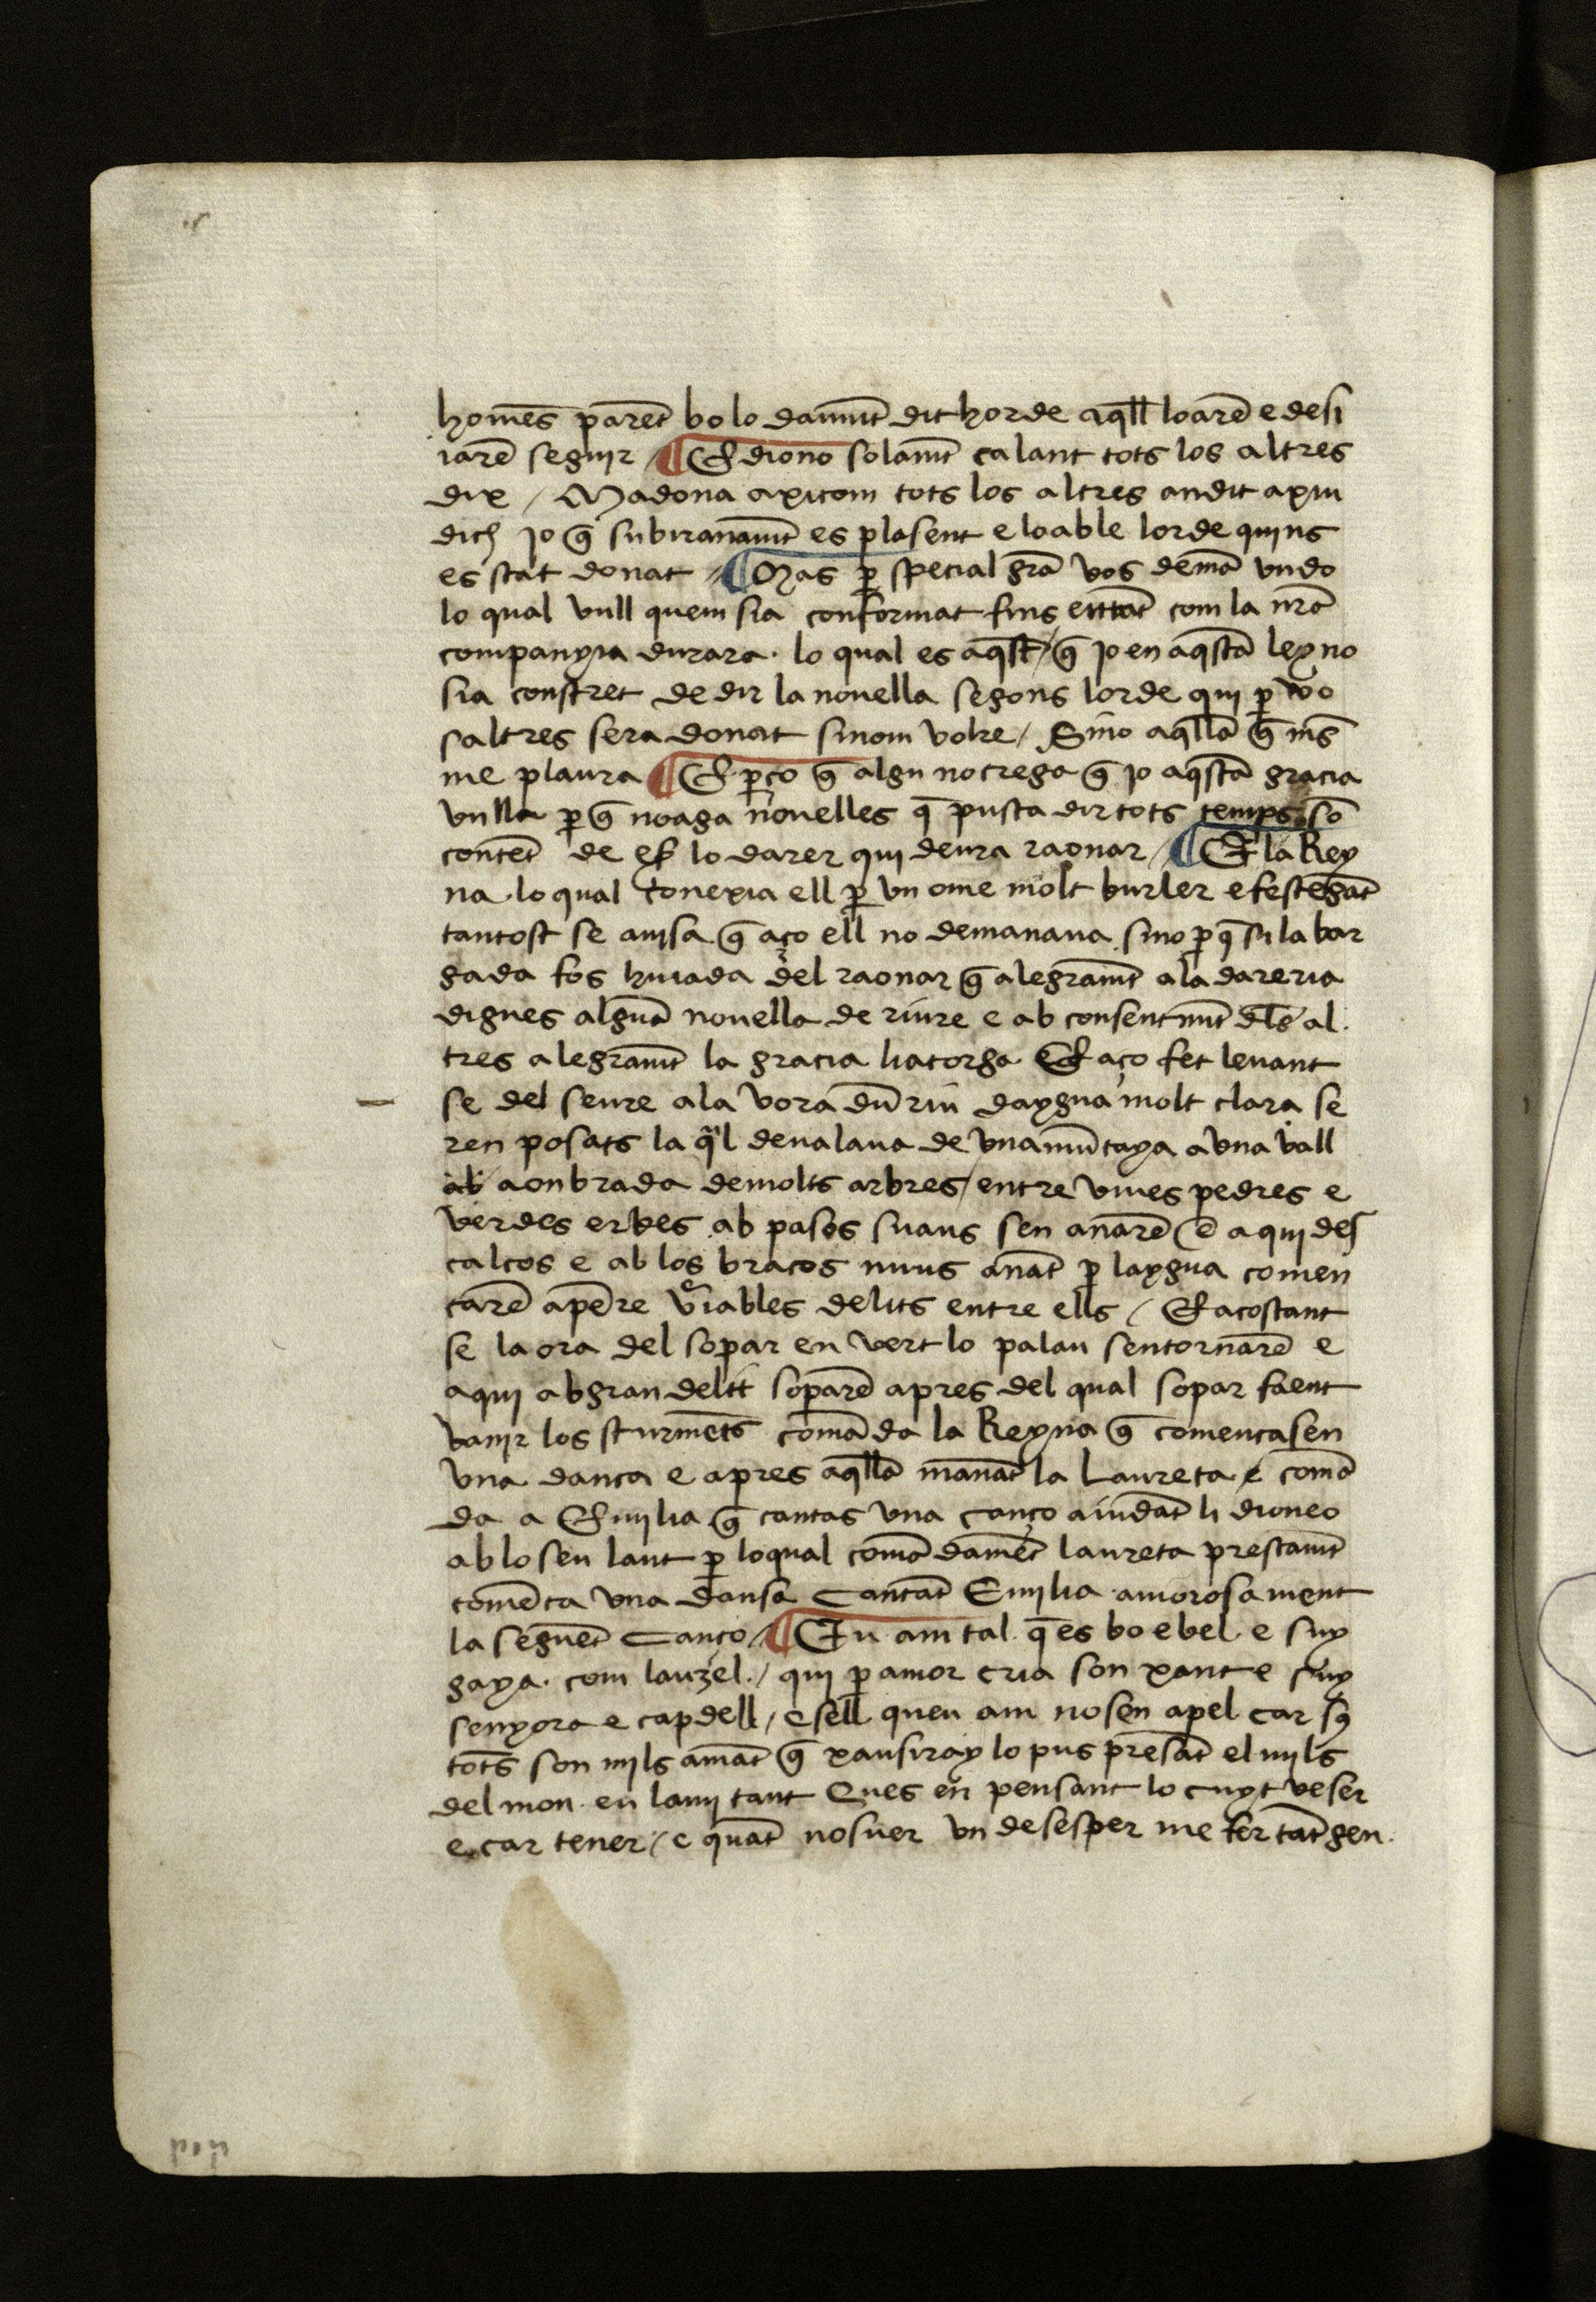 homēs parēt bo lo damūt dit horde aq̄ll loarē e desi
iarē seguir / ¶ E diono solamt̄ calant tots los altres
dix / Madona axicom tots los altres an dit axiu
dich jo q̄ subiranamt̄ es plasent e loable lorde quins
es stat donat // ¶ Mas ꝑ special grā vos demā vndo
lo qual vull quem sia conformat fins en tāt com la nrā
companyia durara. lo qual es aq̄st / q̄ jo en aq̄sta ley no
sia constret de dir la nouella segons lorde qui ꝑ vo
saltres sera donat sinom volre / Sino aq̄lla q̄ mes
me plaura ¶ E ꝑço q̄ algu no crega q̄ jo aq̄sta gracia
vulla ꝑ q̄ no aga nouelles q̄ pusca dir tots temps sō
contēt de eſ lo darer qui deura raonar // ¶ E la Rey
na lo qual conexia ell ꝑ vn ome molt burler e festegāt
tantost se auisa q̄ aço ell no demanaua sino ꝑq̄ si la bar
gada fos huiada del raonar q̄ alegramt̄ ala dareria
digues alguā nouella de riure e ab consentimt̄ dls̄ al
tres alegramt̄ la gracia li atorga E aço fet leuant
se del seure ala vora dū riu daygua molt clara se
ren posats la q̄l deualaua de vna mūtaya a vna vall
aonbrada de molts arbres / entre viues pedres e
verdes erbes ab pasos suaus sen anarē e aqui des
calços e ab los braços nuus anāt ꝑ laygua comen
carē apēre v̄iables delits entre ells / E acostant
se la ora del sopar en vert lo palau sentornarē e
aqui ab gran delit soparē apres del qual sopar faent
vanir los sturmēts comāda la Reyna q̄ comencasen
vna danca e apres aq̄lla manāt la Laureta e comā
da a Emilia q̄ cantas vna canço aiudāt li dioneo
ab lo seu laut ꝑ lo qual comādamēt laureta prestamt̄
comēca vna dansa Cantāt Emilia amorosament
la seguēt Canço // ¶ Eu am tal q̄ es bo e bel e suy
gaya. com lauzel. / qui ꝑ amor cria son xant e suy
senyora e capdell / e sell queu am no sen apel car sꝰ
tots son mils amāt q̄ xausiray lo pus presāt el mils
del mon en lamj tant Ques en pensant lo cuyt veser
e car tener / e quāt nosuer vn desesper me fer tāt gen.